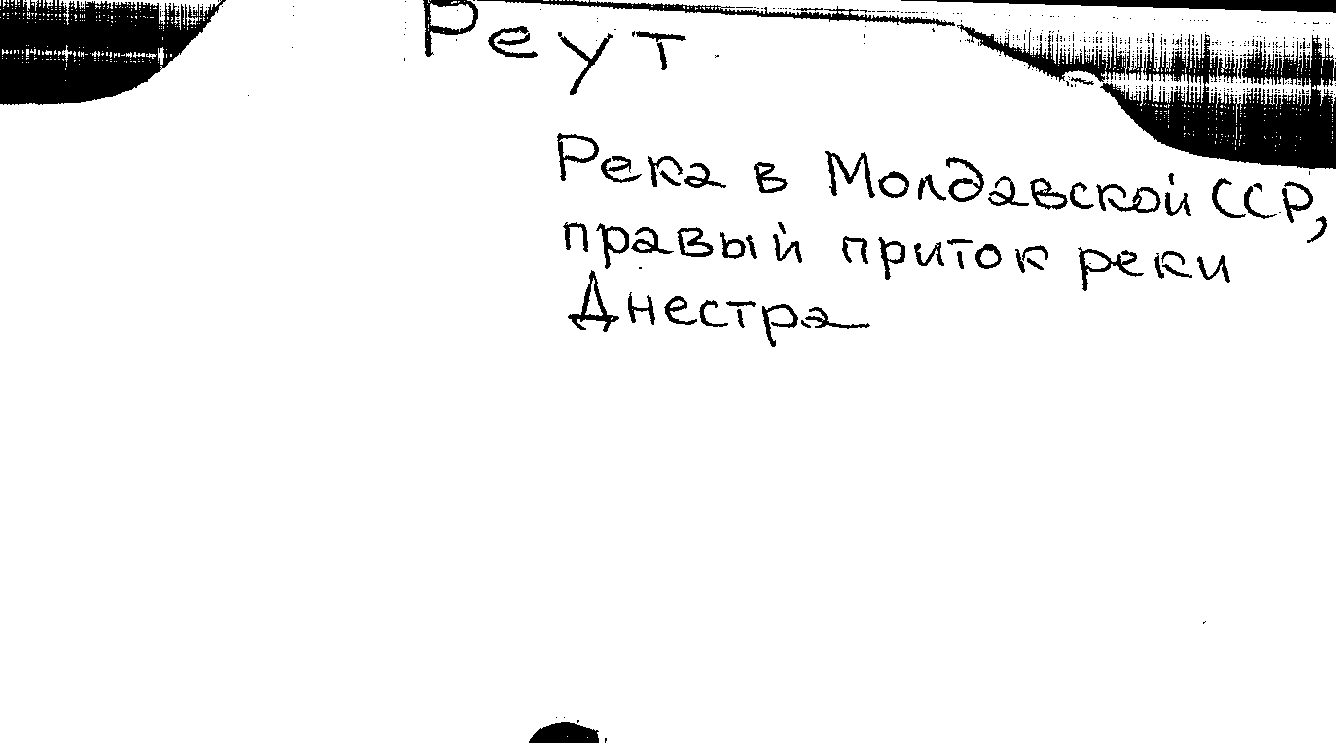 Реут
Река в Молдавской ССР,
правый приток реки
Днестра